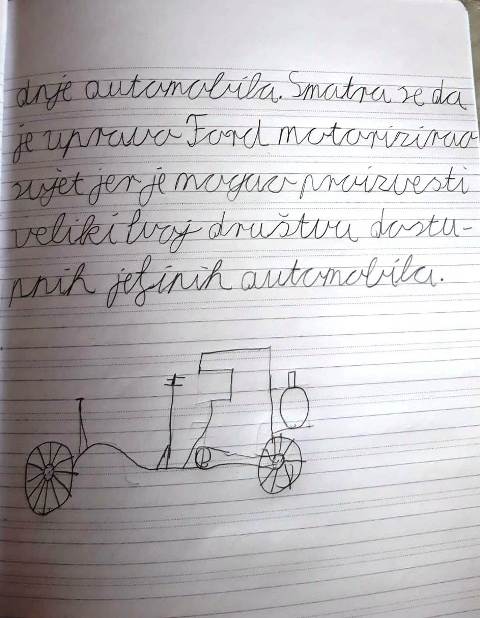 dnje automobila. Smatra se da
je upravo Ford motorizirao
svijet jer je mogao proizvesti
veliki broj društvu dostu-
pnih jeftinih automobila.